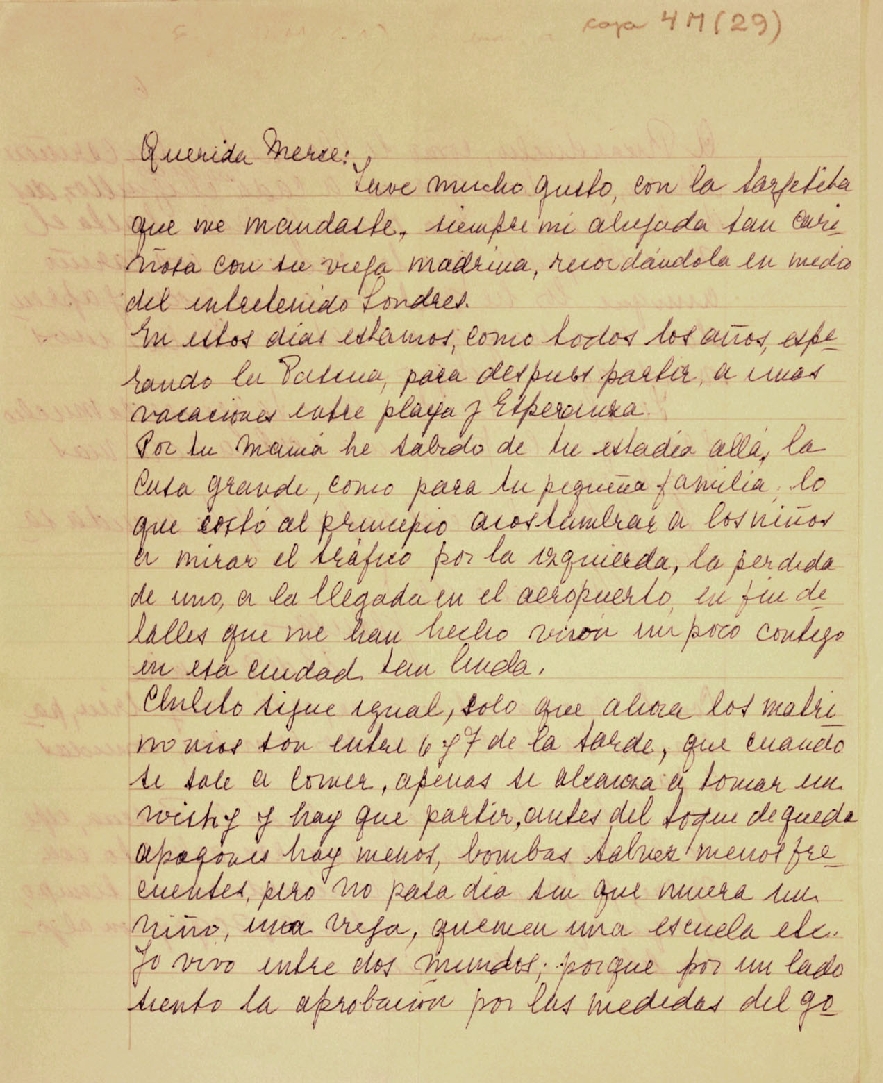 caja 4M(29)
Querida Merce:
Tuve mucho gusto, con la tarjetita
que me mandaste, siempre mi ahijada tan cari-
ñosa con su vieja madrina, recordándola en medio
del entretenido Londres.
En estos días estamos, como todos los años, espe-
rando la Pascua, para después partir, a unas
vacaciones entre playa y Esperanza.
Por tu mamá he sabido de tu estadía allá, la
casa grande, como para tu pequeña familia, lo
que costó al principio acostumbrar a los niños
a mirar el tráfico por la izquierda, la perdida
de uno, a la llegada en el aeropuerto, en fin de-
talles que me han hecho vivir un poco contigo
en esa ciudad tan linda.
Chilito sigue igual, solo que ahora los matri
monios son entre 6 y 7 de la tarde, que cuando
se sale a comer, apenas se alcanza a tomar un
wisky y hay que partir, antes del toque de queda
apagones hay menos, bombas talvez menos fre-
cuentes, pero no pasa día sin que muera un
niño, una vieja, quemen una escuela etc.
Yo vivo entre dos mundos; porque por un lado
siento la aprobación por las medidas del go-